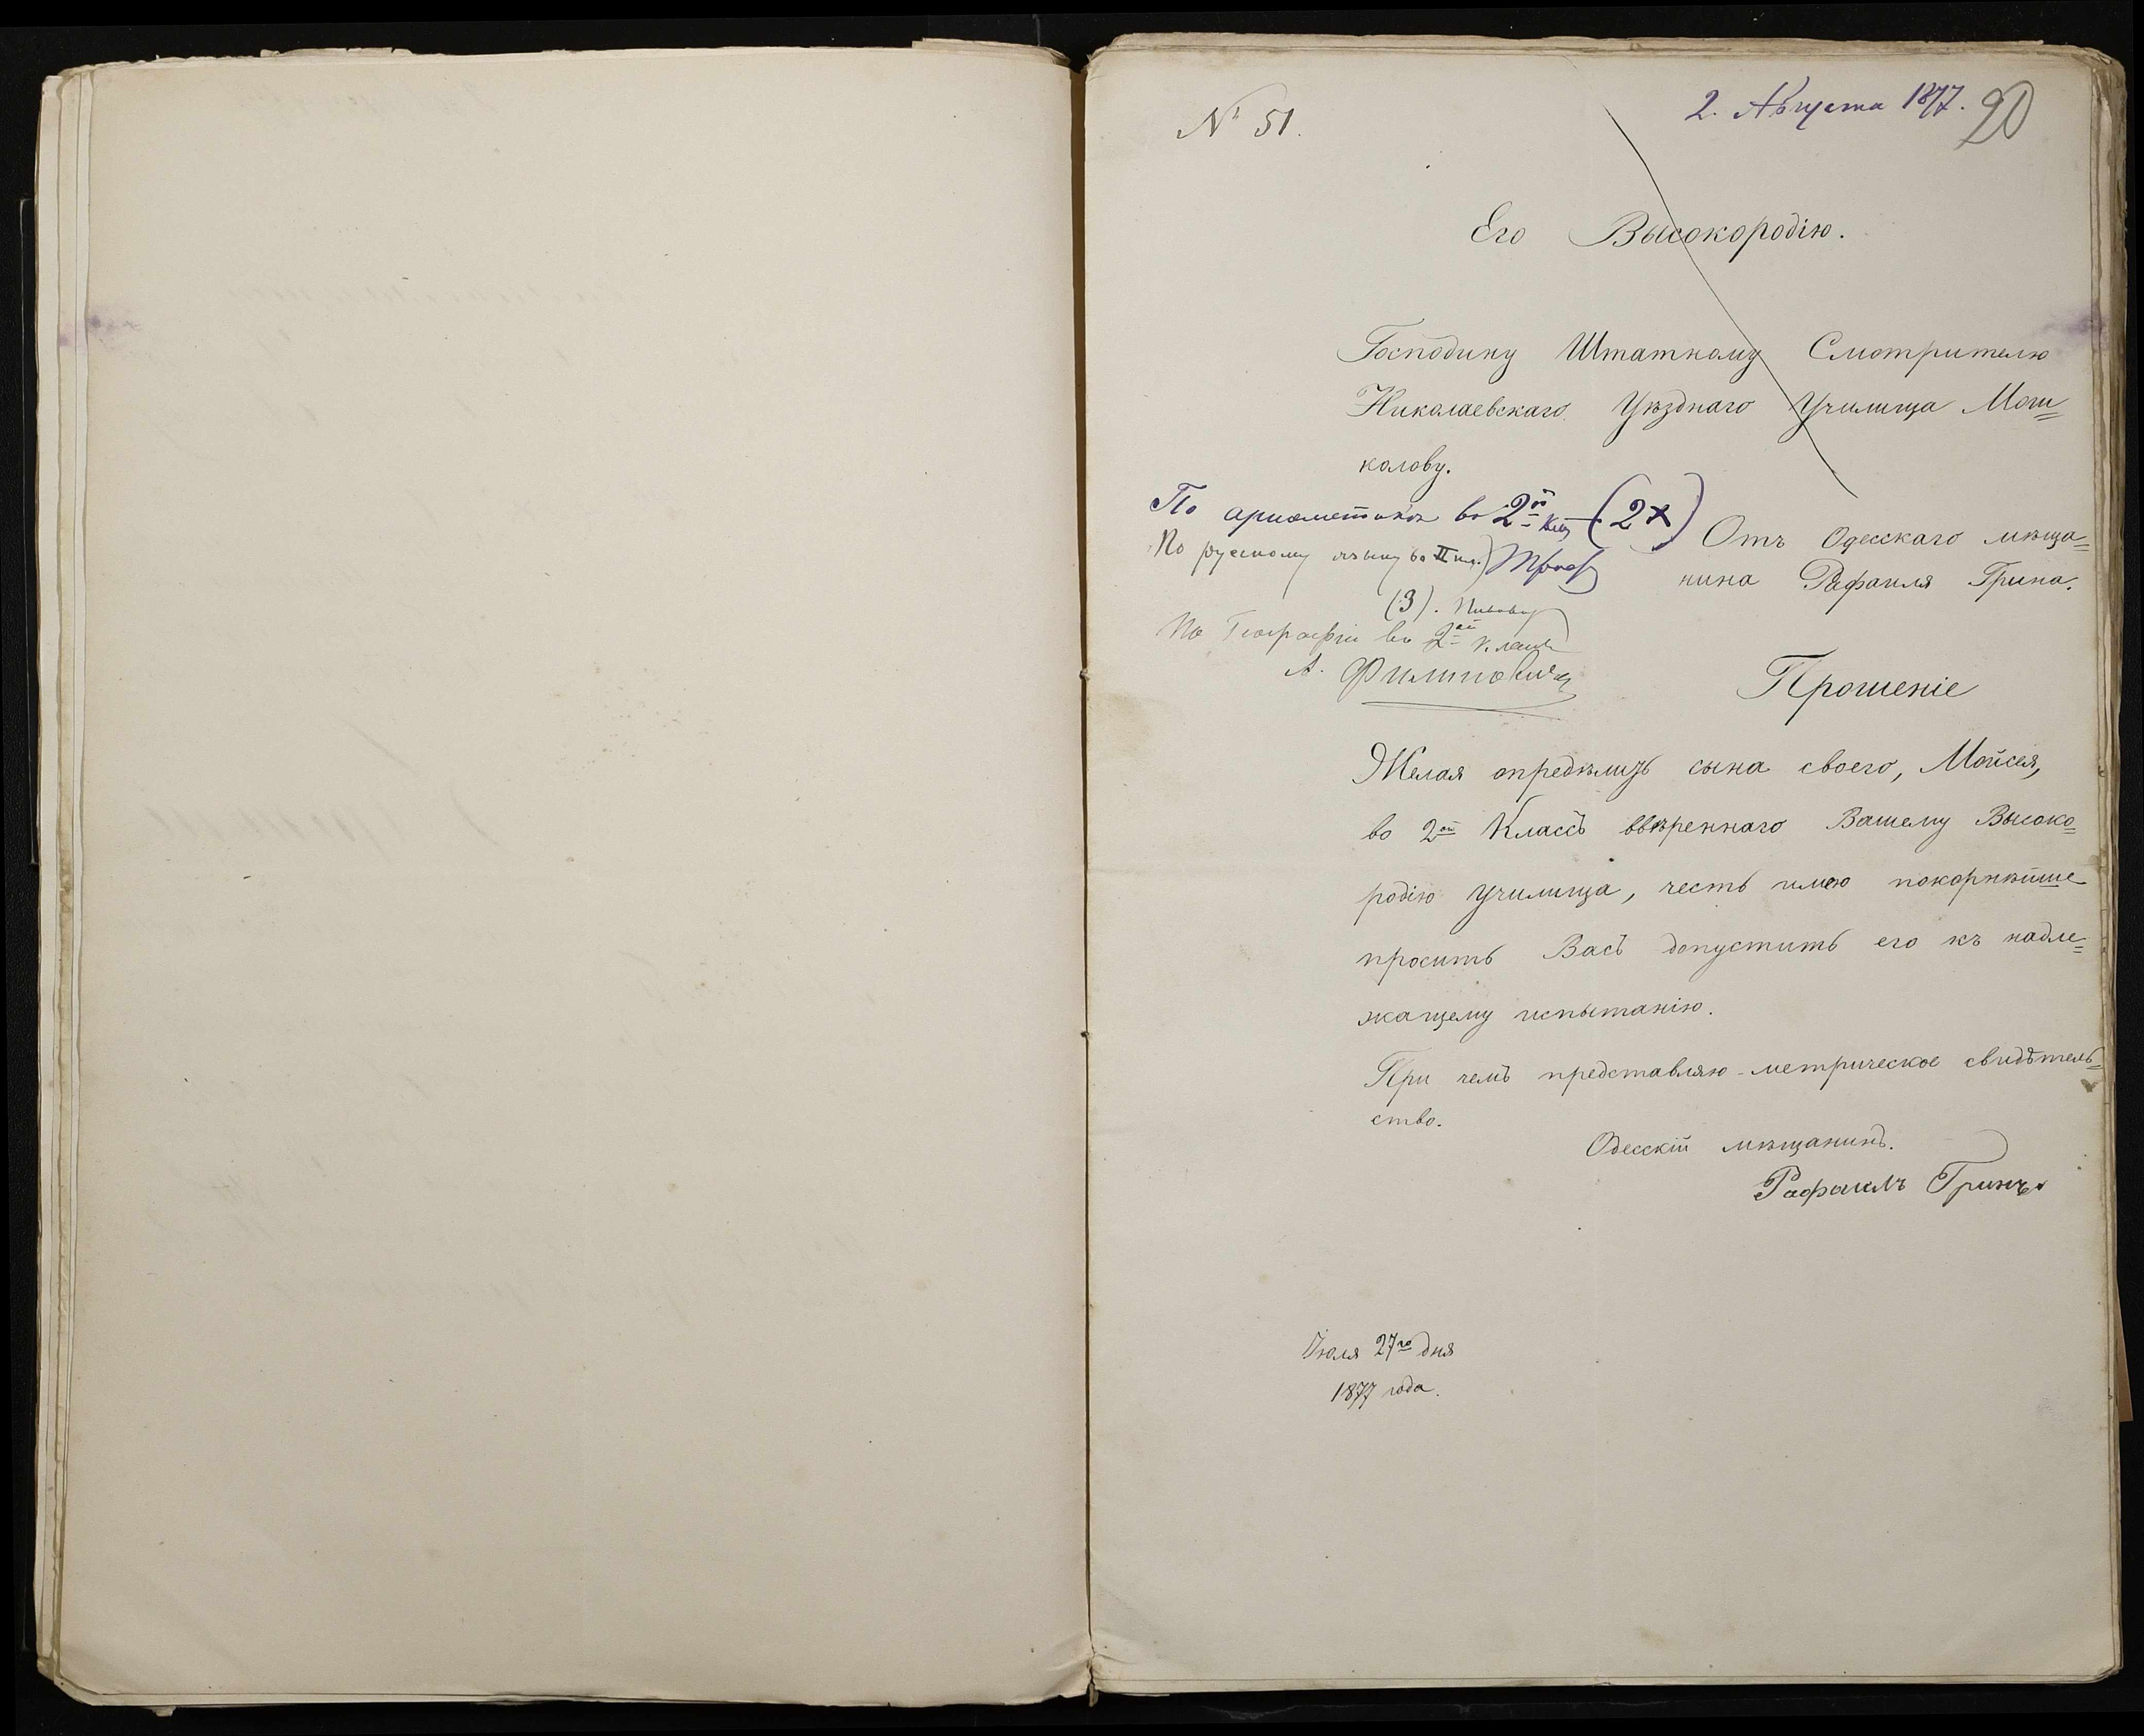 № 51.
2. Августа 1877.
20
Его Высокородію.
Господину Штатному Смотрителю
Николаевскаго Уѣзднаго Училища Мош=
колову.
По ариѳметикѣ во 2й кл (2+)
По русскому языку во II кл.)
(3).
По Географіи во 2ой классъ
А. Филиповичъ
Отъ Одесскаго мѣща=
нина Рафаиля Грина.
Прошеніе
Желая опредѣлить сына своего, Мойсея,
во 2ой Классъ ввѣреннаго Вашему Высоко=
родію училища, честь имѣю покорнѣйше
просить Васъ допустить его къ надле=
жащему испытанію.
При чемъ представляю - метрическое свидѣтель=
ство.
Одесскій мѣщанинъ.
Рафаилъ Гринъ
Іюля 27го дня
1877 года.